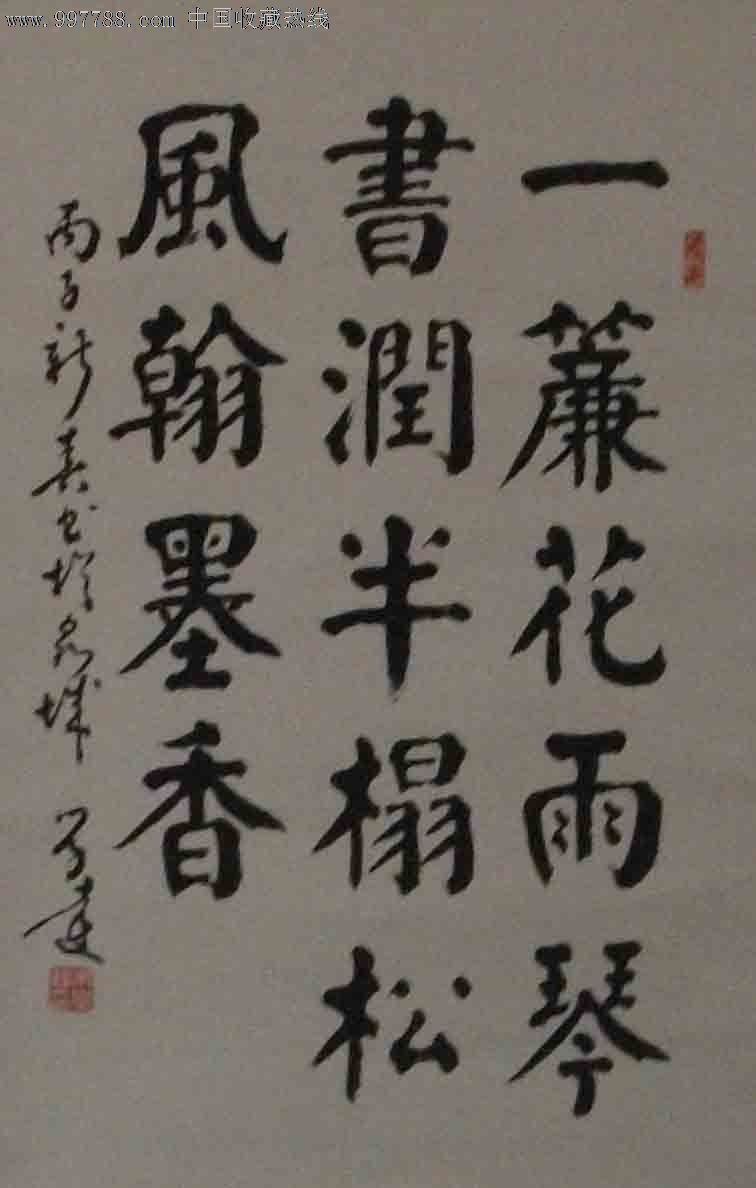 www.997788.com 中国收藏热线
一簾花雨琴
書潤半榻松
風翰墨香
丙子新春书於泉城